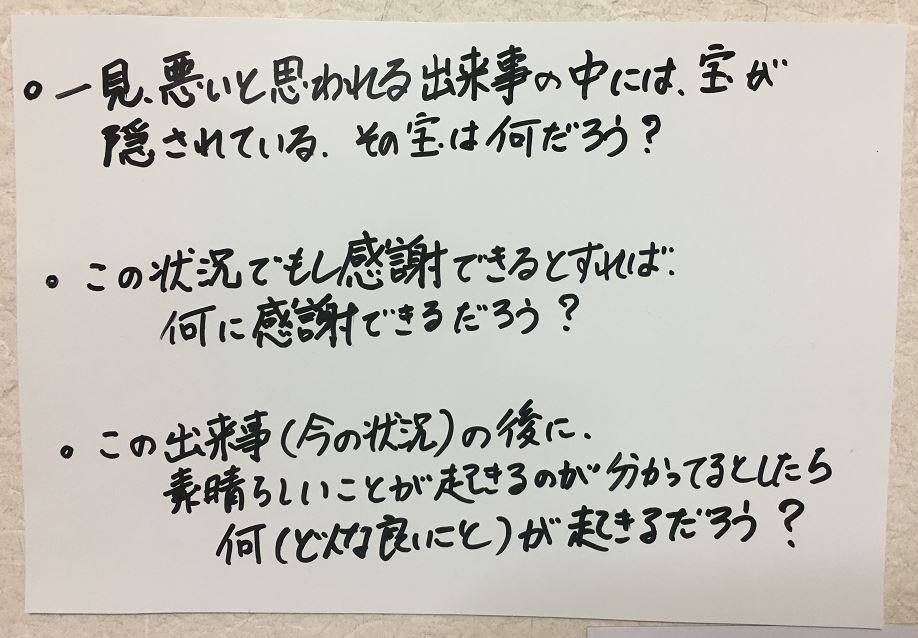 。一見、悪いと思われる出来事の中には、宝が
隠されている。その宝は何だろう？
。この状況でもし感謝できるとすれば、
何に感謝できるだろう？
。この出来事(今の状況)の後に、
素晴らしいことが起きるのが分かってるとしたら
何(どんな良いこと)が起きるだろう？